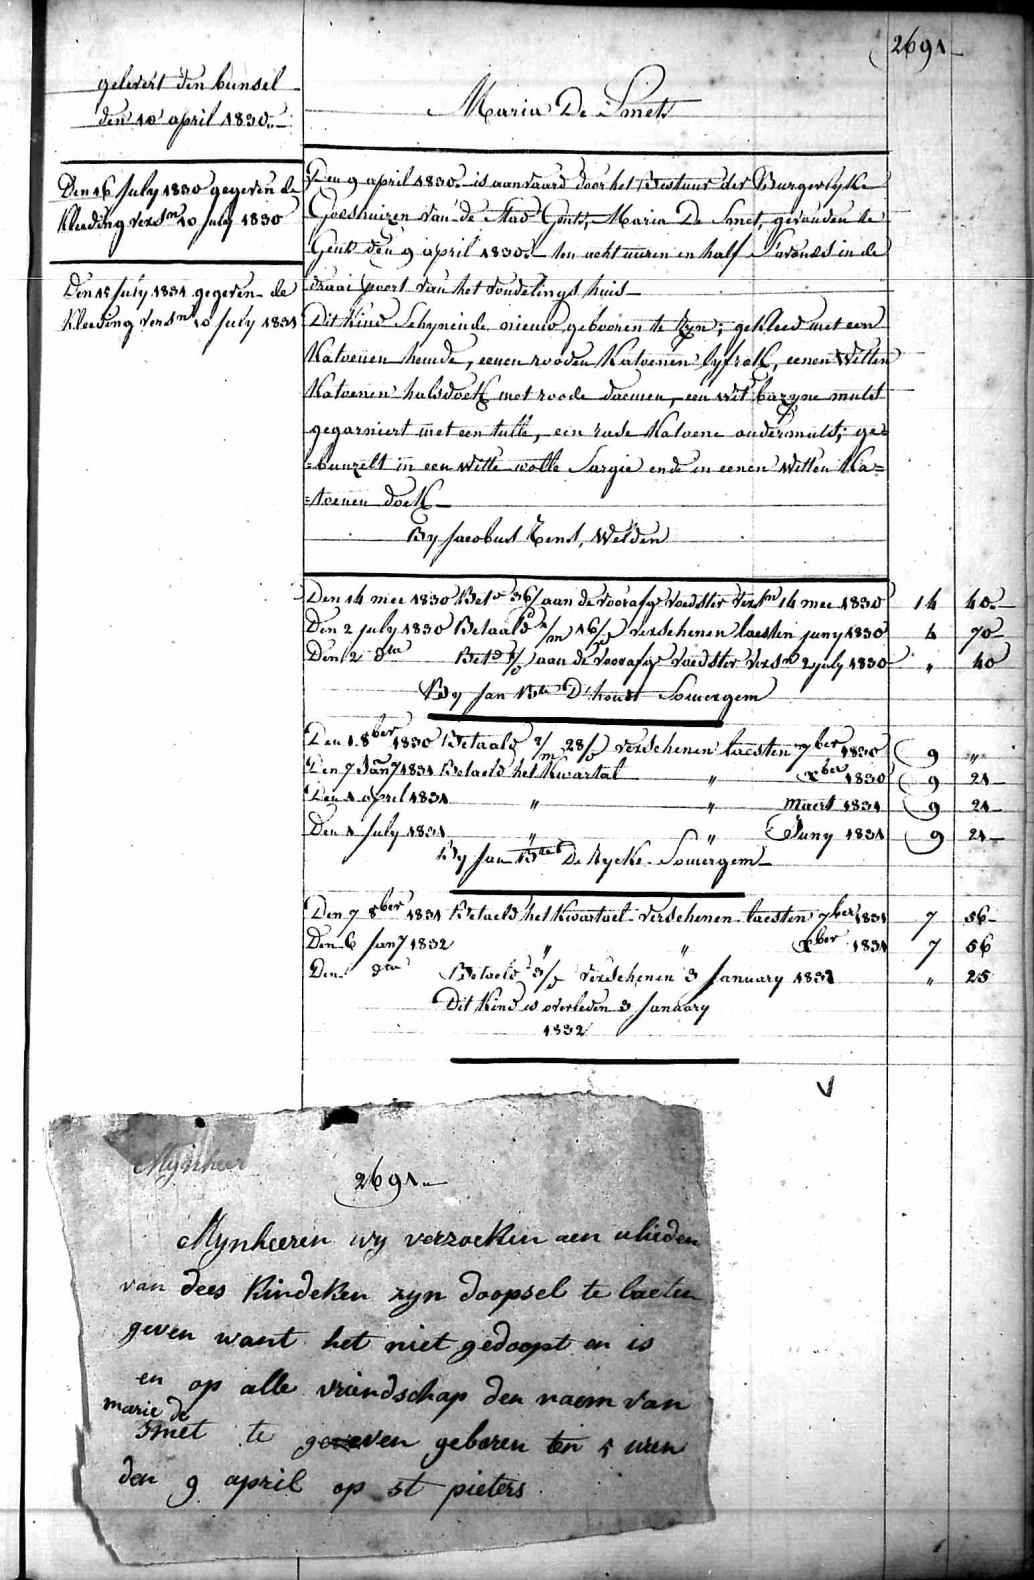 2691
gelevert den bunsel
den 10 april 1830.
Maria De Smet
Den 16 July 1830 gegeven de
Kleeding versn 10 july 1830
Den 15 July 1831 gegeven de
Kleeding versn 10 july 1831
Den 9 april 1830. is aanvaard door het Bestuur der Burgerlyke
Godshuizen van de Stad Gent, Maria De Smet, gevonden te
Gent den 9 april 1830. ten acht uuren en half S'avonds in de
draai poort van het vondelings huis
Dit Kind Schynende nieuw gebooren te Zyn; gekleed met een
Katoenen hemde, eenen rooden Katoenen lyfrok, eenen Witten
Katoenen halsdoek met roode daemen, een wit bazyne muts
gegarniert met een tulle, een rode Katoene ondermuts; ge=
=bunzelt in een Witte wolle Sargie ende in eenen Witten Ka=
=toenen doek
By Jacobus Eens, Welden
Den 14 mee 1830 Bete 36/ aan de voorafge voedster versn 14 mee 1830 14 40
Den 2 july 1830 Betaald 2/m 16/d verschenen laesten juny 1830 4 70
Den 2 dta Betd /d aan de voorafge voedster versn 2 july 1830 " 40
By Jan Bte D'hondt Somergem
Den 1. 8ber 1830 Betaald 2/m 28/d verschenen laesten 7ber 1830 9 "
Den 7 Jany 1831 Betaeld het Kwartal " xber 1830 9 21
Den 1 april 1831 " " maert 1831 9 21
Den 1 July 1831 " " Juny 1831 9 21
By Jan Bte De Rycke Somergem
Den 7 8ber 1831 Betaeld het Kwartael verschenen laesten 7ber 1831 7 56
Den 6 Jany 1832 " " xber 1831 7 56
Den dta Betaeld 3/d verschenen 3 January 1832 " 25
Dit Kind is overleden 3 January
1832
Mynheer
2691
Mynheeren wy verzoeken aen ulieden
van dees Kindeken zyn doopsel te laeten
geven want het niet gedoopt en is
en op alle vriendschap den naem van
marie de
smet te geven geboren ten 5 uren
den 9 april op st pieters